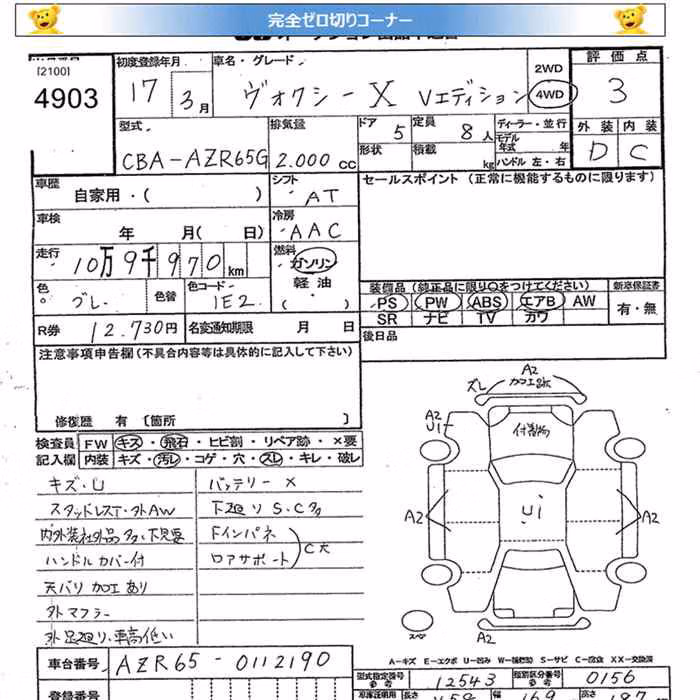 完全ゼロ切りコーナー
[2100]
4903
初度登録年月
17 3月
車名・グレード
ヴォクシー X Vエディション
2WD
4WD
評価点
3
外装 内装
D C
型式
CBA-AZR65G
排気量
2.000 cc
ドア 5
定員 8人
形状
積載 kg
ディーラー・並行
モデル年式 年
ハンドル 左・右
車歴
自家用・( )
シフト
AT
セールスポイント (正常に機能するものに限ります)
車検
年 月( 日)
冷房
AAC
走行
10万9千970km
燃料
ガソリン
軽油
( )
色
グレー
色替
色コード
1E2
装備品 (純正品に限り○をつけてください)
PS PW ABS エアB AW
SR ナビ TV カワ
新車保証書
有・無
R券 12.730円
名変通知期限 月 日
後日品
注意事項申告欄(不具合内容等は具体的に記入して下さい)
修復歴 有 [箇所 ]
検査員記入欄
FW キズ・飛石・ヒビ割・リペア跡・×要
内装 キズ・汚レ・コゲ・穴・スレ・キレ・破レ
キズ・U
スタッドレスT・外AW
内外装社外品多々・下見要
ハンドルカバー付
天バリ加工あり
外マフラー
外足廻り、車高低い
バッテリーX
下廻りS.C多
Fインパネ
ロアサポート
C大
A2
ズレ 加工跡
A2
U1
付着物
A2
U1
A2
スペア
A2
A-キズ E-エクボ U-凹み W-補修跡 S-サビ C-腐食 XX-交換済
車台番号
AZR65-0112190
型式指定番号
12543
類別区分番号
0156
登録番号
長さ
459
幅
169
高さ
187